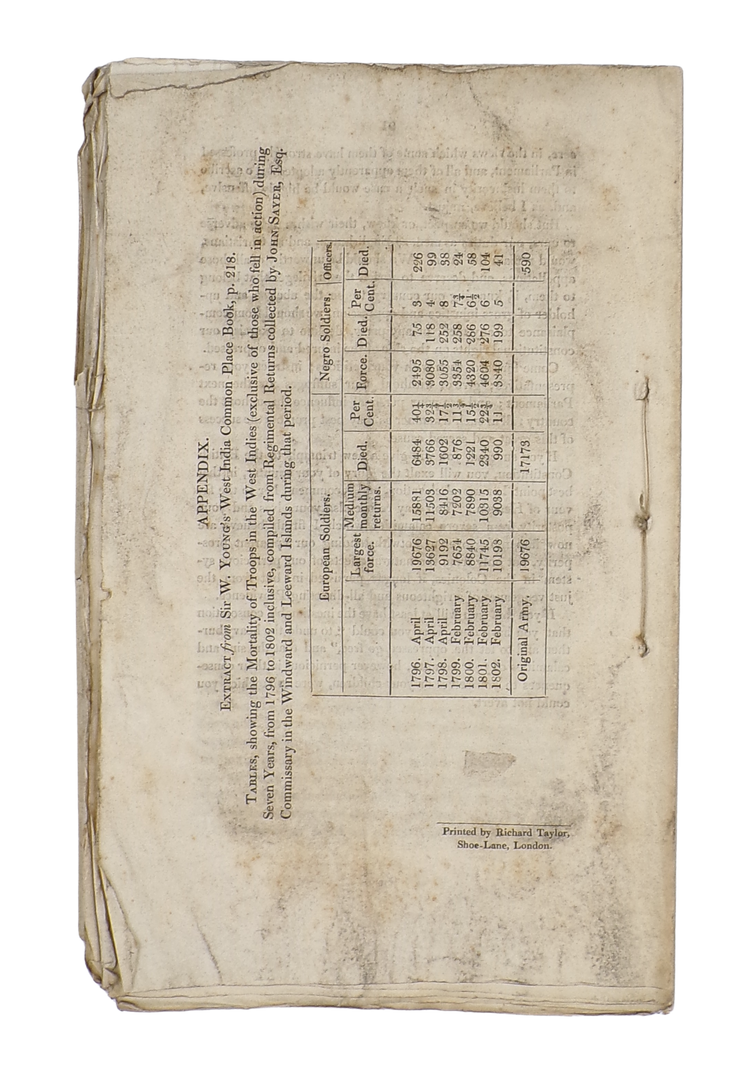 APPENDIX.
EXTRACT from Sir W. YOUNG's West India Common Place Book, p. 218.
TABLES, showing the Mortality of Troops in the West Indies (exclusive of those who fell in action) during
Seven Years, from 1796 to 1802 inclusive, compiled from Regimental Returns collected by JOHN SAYER, Esq.
Commissary in the Windward and Leeward Islands during that period.
European Soldiers. Negro Soldiers. Officers.
Largest force. Medium monthly returns. Died. Per Cent. Force. Died. Per Cent. Died.
1796. April 19676 15881 6484 40¼ 2495 75 3 226
1797. April 13627 11503 3766 3080 118 4 99
1798. April 9192 8416 1602 3055 252 8 38
1799. February 7654 7202 876 3354 258 24
1800. February 8840 7890 1221 4320 286 6½ 58
1801. February 11745 10315 2340 4604 276 6 104
1802. February 10198 9038 990 11 3840 199 5 41
Original Army, 19676 17173 590
Printed by Richard Taylor,
Shoe-Lane, London.